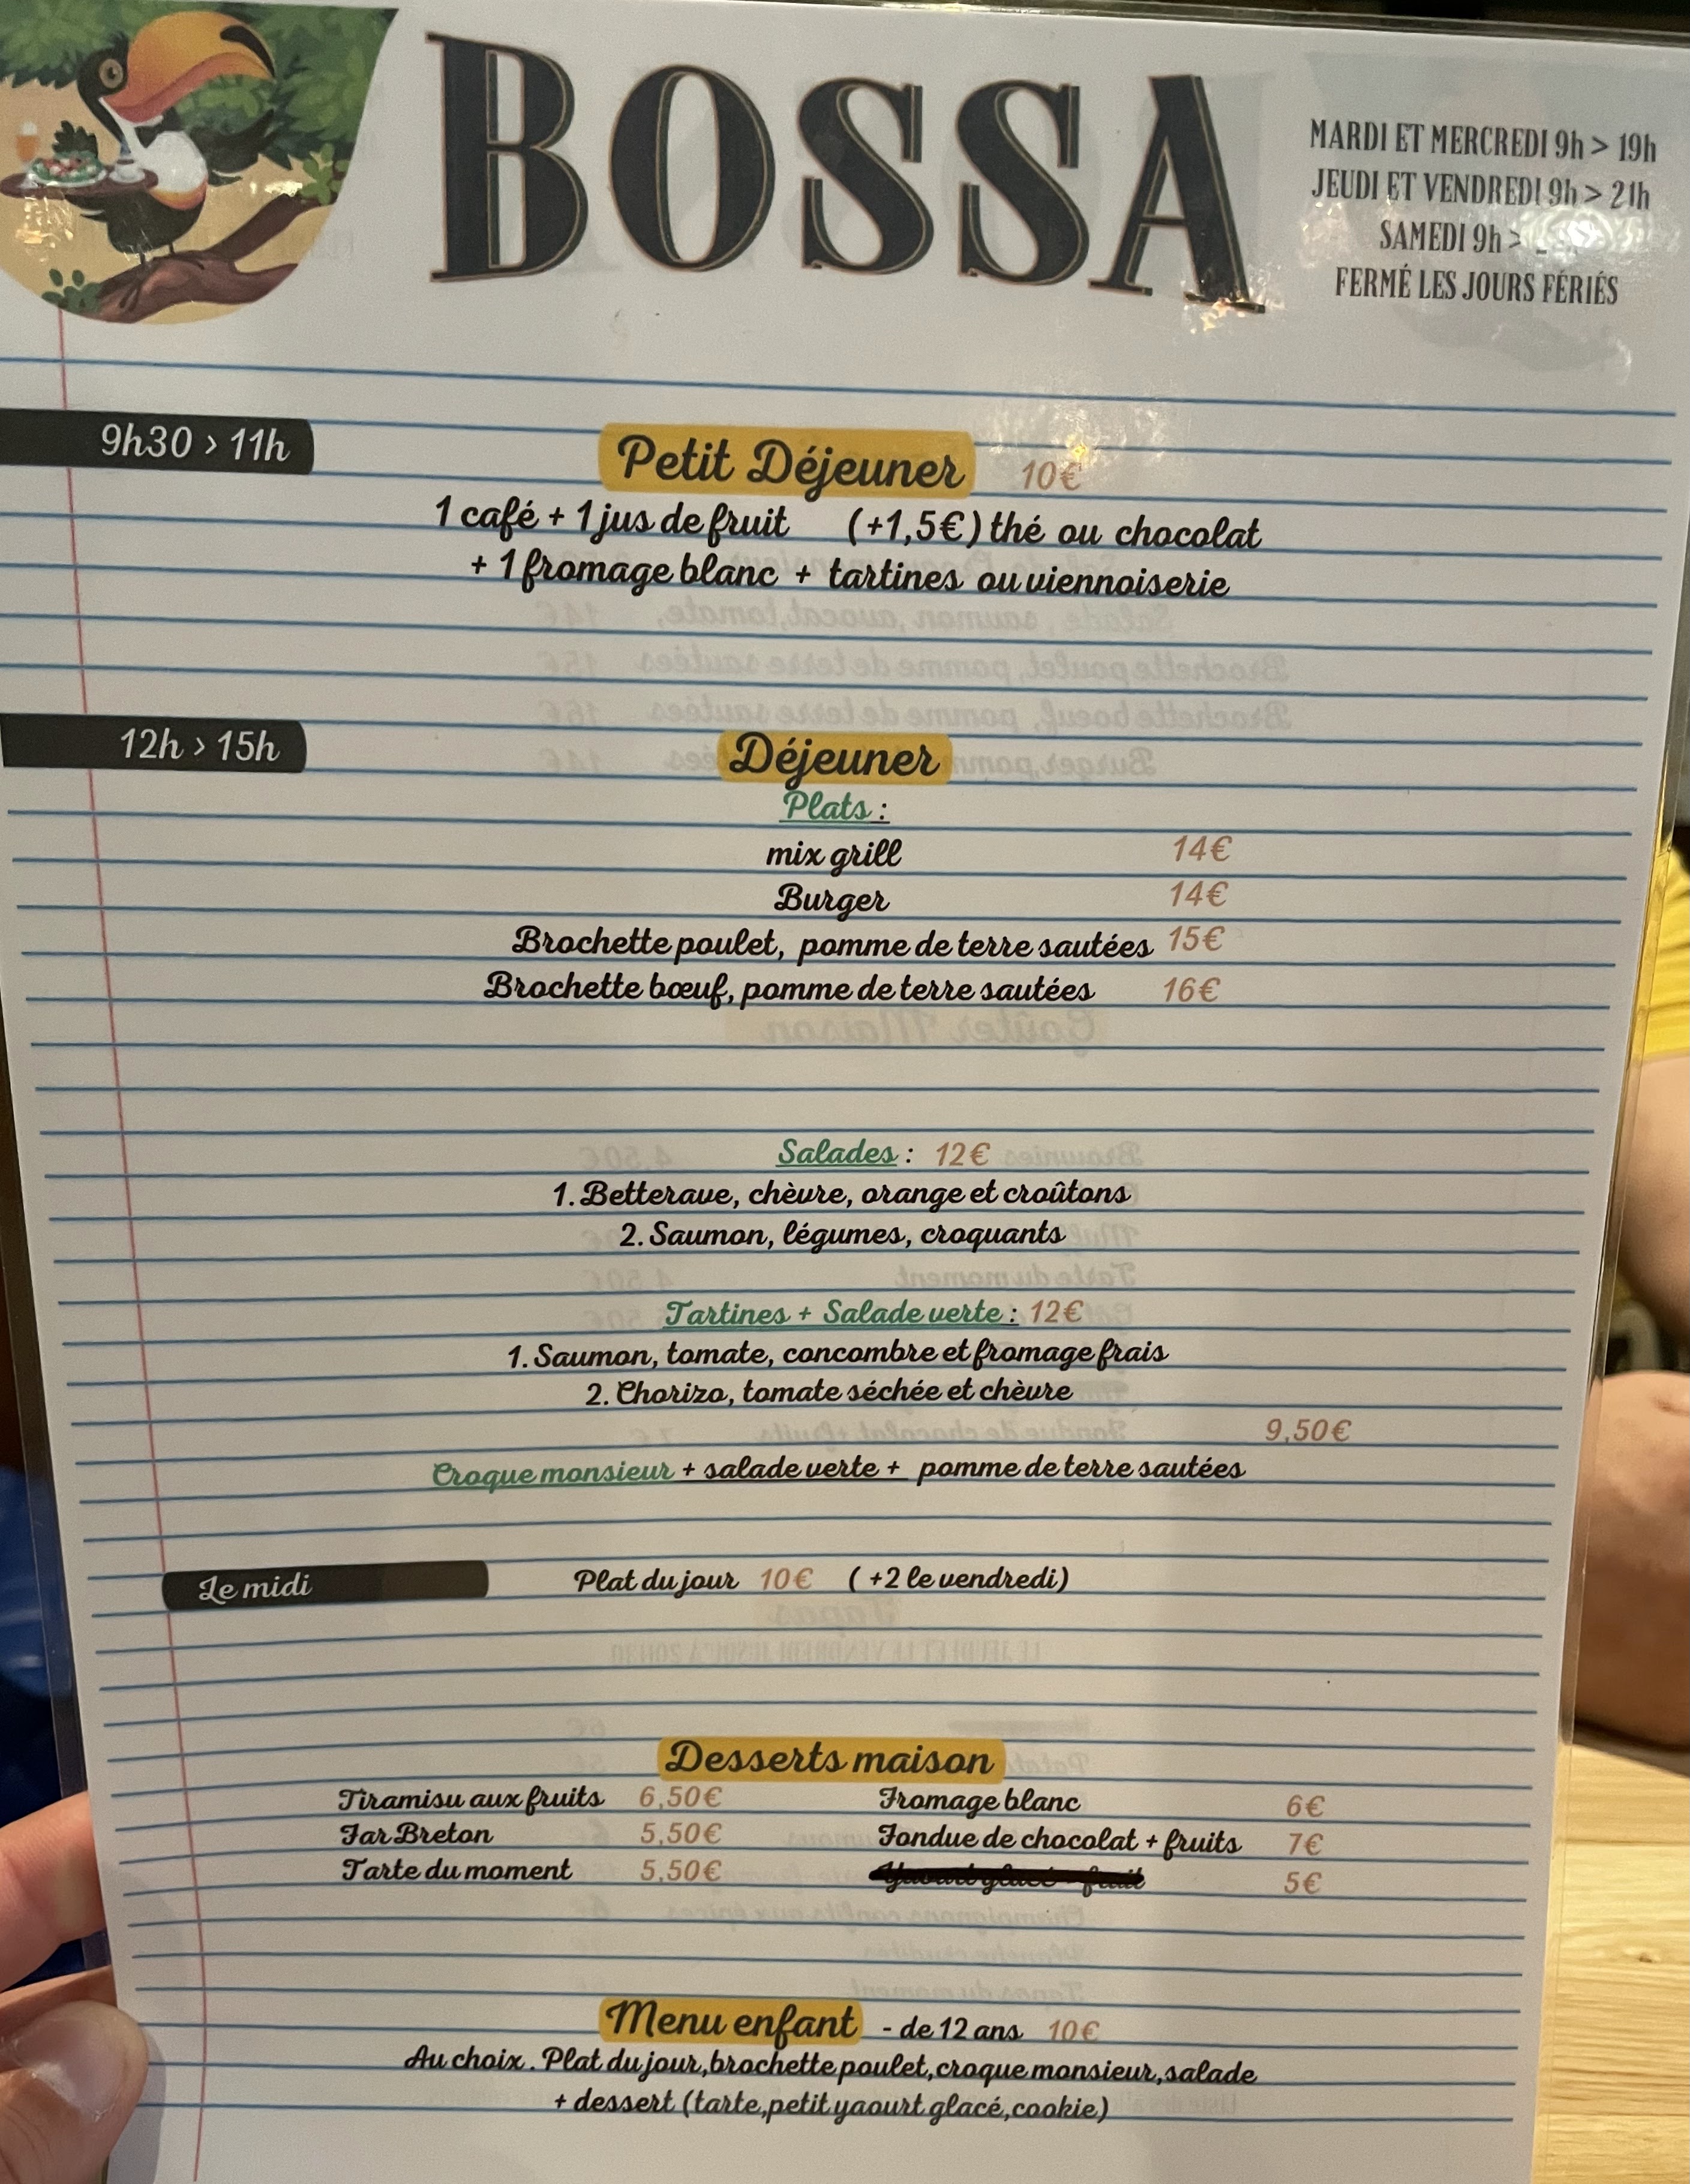 BOSSA
MARDI ET MERCREDI 9h > 19h
JEUDI ET VENDREDI 9h > 21h
SAMEDI 9h >
FERMÉ LES JOURS FÉRIÉS
9h30 > 11h
Petit Déjeuner 10€
1 café + 1 jus de fruit (+1,5€) thé ou chocolat
+ 1 fromage blanc + tartines ou viennoiserie
12h > 15h
Déjeuner
Plats :
mix grill 14€
Burger 14€
Brochette poulet, pomme de terre sautées 15€
Brochette bœuf, pomme de terre sautées 16€
Salades : 12€
1. Betterave, chèvre, orange et croûtons
2. Saumon, légumes, croquants
Tartines + Salade verte : 12€
1. Saumon, tomate, concombre et fromage frais
2. Chorizo, tomate séchée et chèvre
9,50€
Croque monsieur + salade verte + pomme de terre sautées
Le midi
Plat du jour 10€ ( +2 le vendredi)
Desserts maison
Tiramisu aux fruits 6,50€ Fromage blanc 6€
Far Breton 5,50€ Fondue de chocolat + fruits 7€
Tarte du moment 5,50€ 5€
Menu enfant - de 12 ans 10€
Au choix . Plat du jour,brochette poulet,croque monsieur,salade
+ dessert (tarte,petit yaourt glacé,cookie)